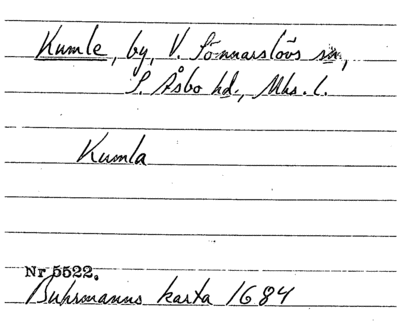 Kumle, by, V. Sönnarslövs sn,
S. Åsbo hd., Mhs. l.
Kumla
Nr 5522.
Buhrmanns karta 1684